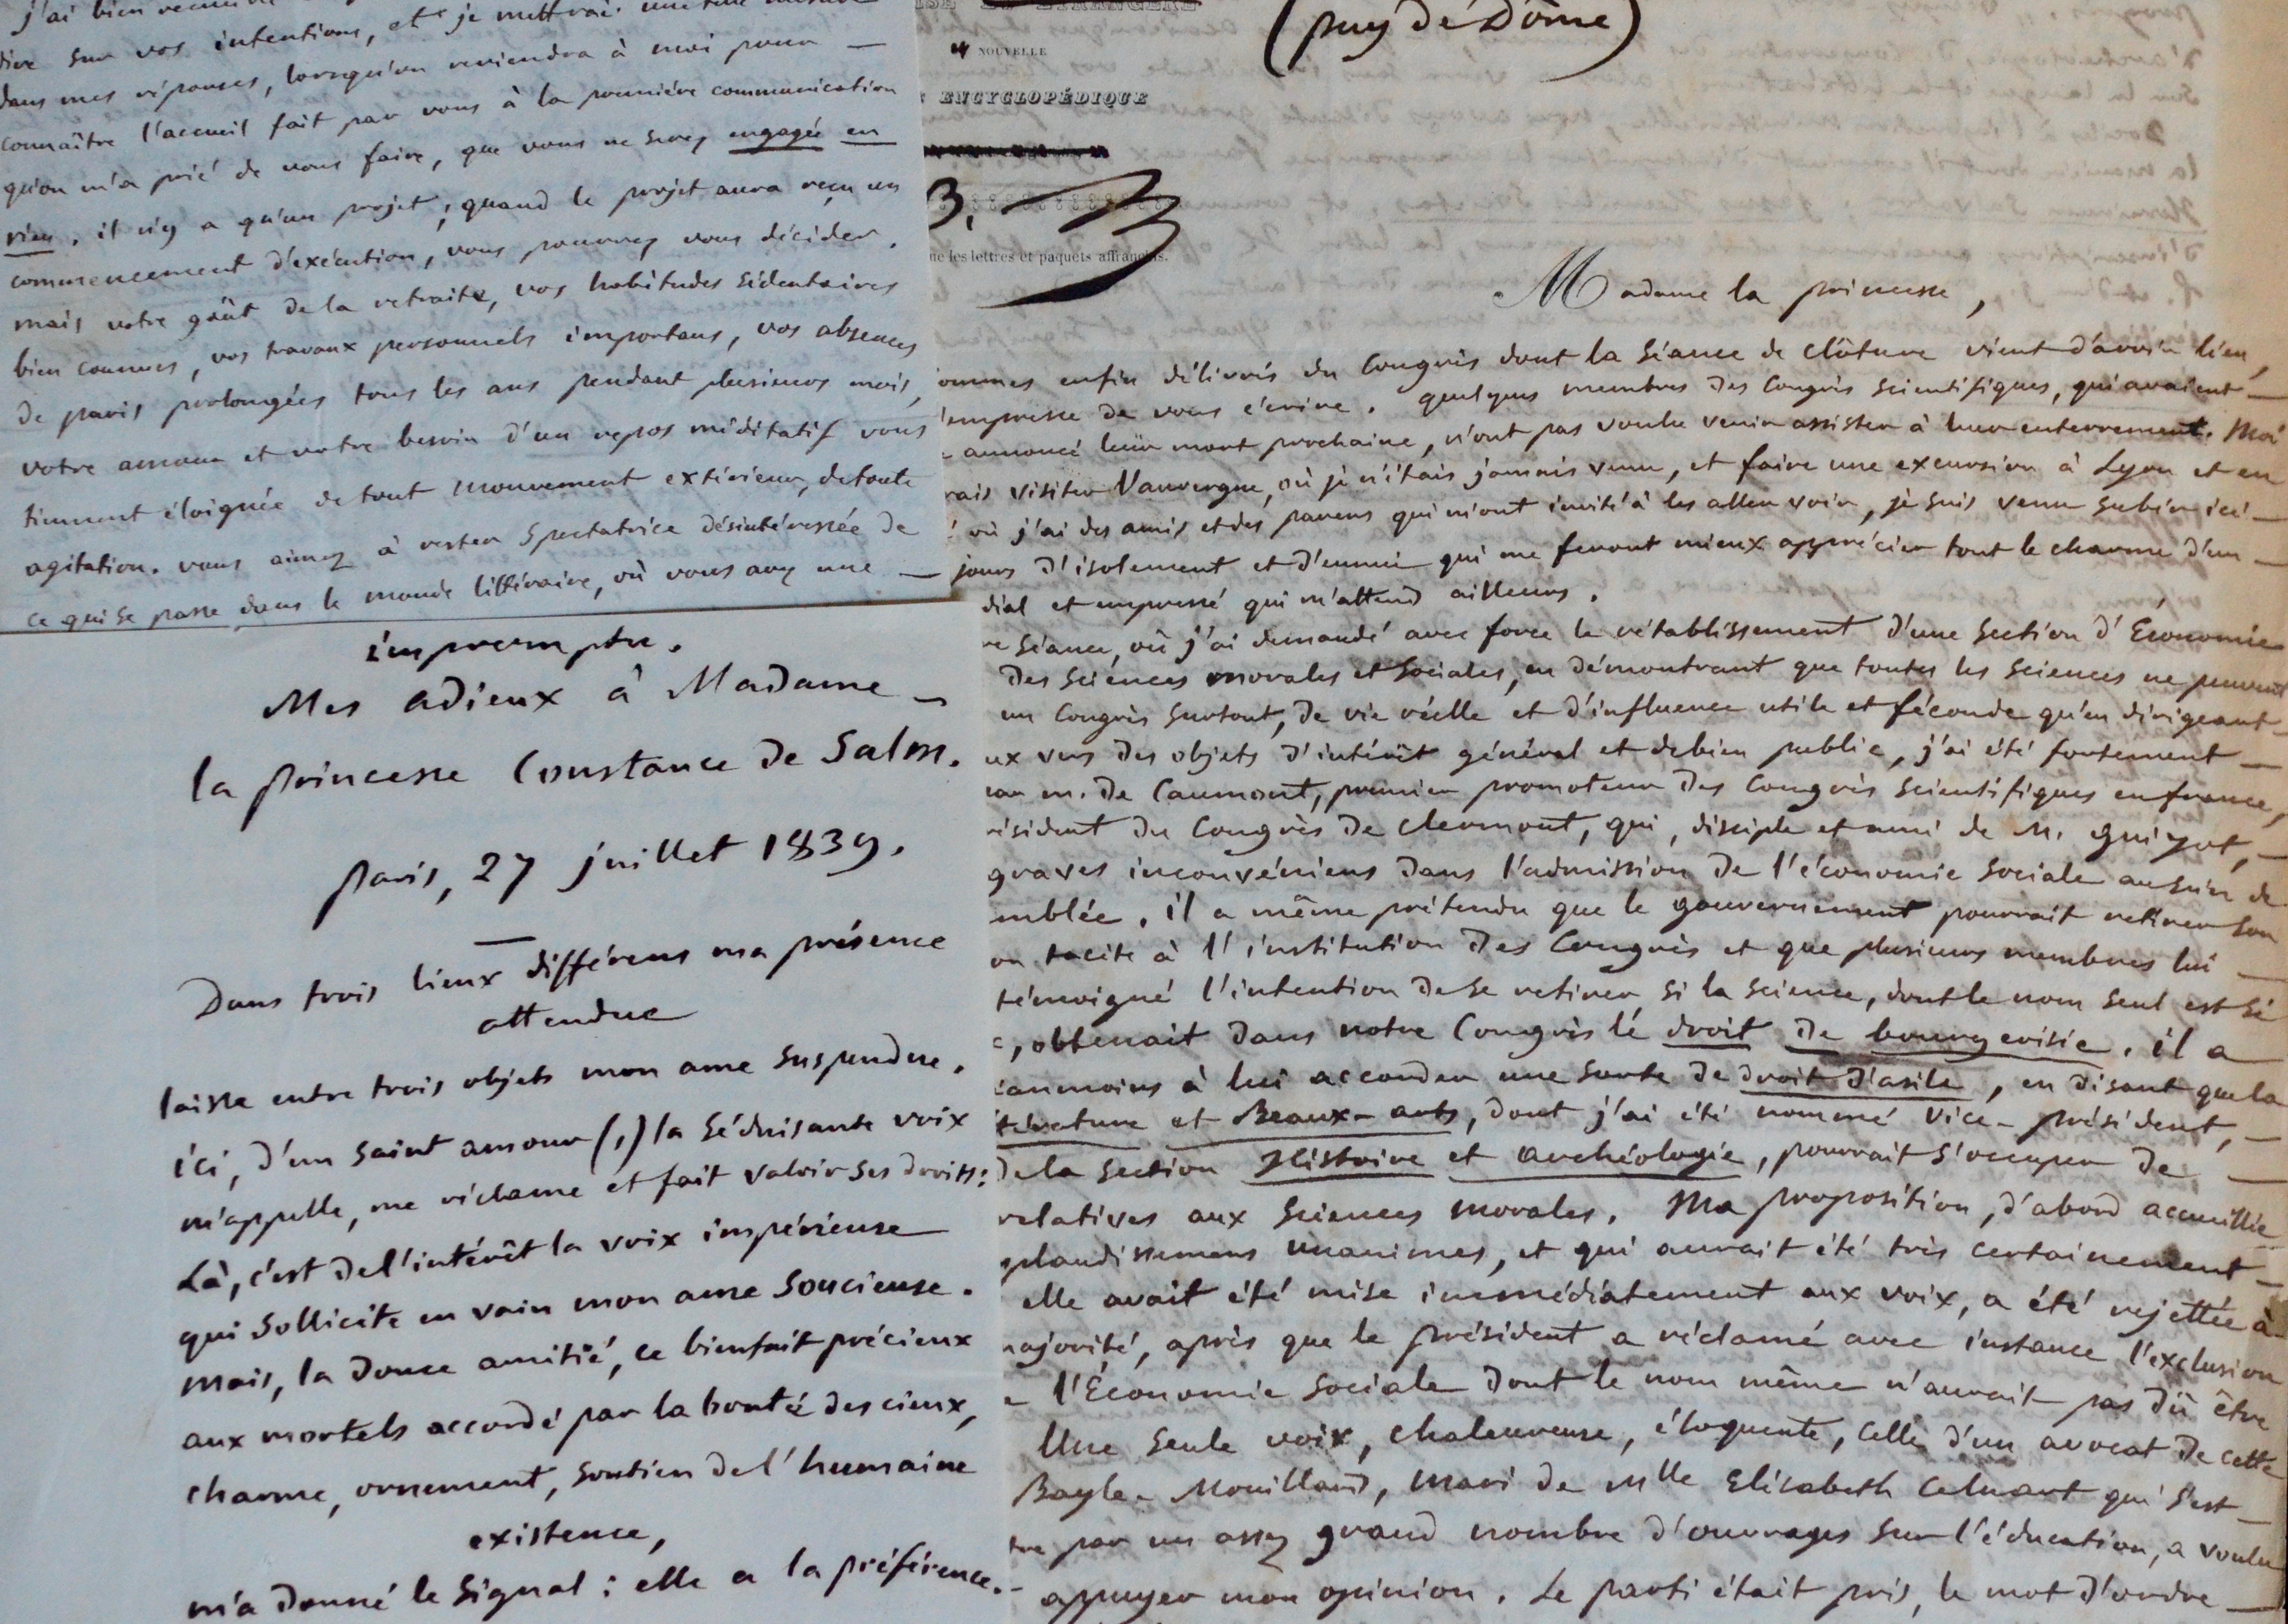 j'ai bien
dire sur vos intentions, et je mettrai une
dans mes réponses, lorsqu'on reviendra à moi pour —
connaître l'accueil fait par vous à la première communication
qu'on m'a prié de vous faire, que vous ne serez engagée en
rien. il n'y a qu'un projet; quand le projet aura reçu un
commencement d'exécution, vous pourrez vous décider.
mais votre goût de la retraite, vos habitudes sédentaires
bien connues, vos travaux personnels importans, vos absences
de paris prolongées tous les ans pendant plusieurs mois,
votre amour et votre besoin d'un repos méditatif vous
tiennent éloignée de tout mouvement extérieur, de toute
agitation. vous aimez à rester spectatrice désintéressée de
ce qui se passe dans le monde littéraire, où vous avez une —
impromptu.
Mes adieux à Madame —
la princesse Constance de Salm.
paris, 27 juillet 1839.
Dans trois lieux différens ma présence
attendue
laisse entre trois objets mon ame suspendue.
ici, d'un saint amour (1) la séduisante voix
m'appelle, me réclame et fait valoir ses droits:
Là, c'est de l'intérêt la voix impérieuse
qui sollicite en vain mon ame soucieuse.
mais, la douce amitié, ce bienfait précieux
aux mortels accordé par la bonté des cieux,
charme, ornement, soutien de l'humaine
existence,
m'a donné le signal: elle a la préférence.
(puy de Dôme)
ÉTRANGÈRE
NOUVELLE
ENCYCLOPÉDIQUE
3.
ne les lettres et paquets affranchis.
Madame la princesse,
ommes enfin délivrés du Congrès dont la séance de clôture vient d'avoir lieu,
empresse de vous écrire. quelques membres des Congrès scientifiques, qui avaient —
annoncé leur mort prochaine, n'ont pas voulu venir assister à leur enterrement. Moi
rais visiter l'auvergne, où je n'étais jamais venu, et faire une excursion à Lyon et en
où j'ai des amis et des parens qui m'ont invité à les aller voir, je suis venu subir ici —
jours d'isolement et d'ennui qui me feront mieux apprécier tout le charme d'un —
dial et empressé qui m'attend ailleurs.
re séance, où j'ai demandé avec force le rétablissement d'une section d'Économie
des sciences morales et sociales, en démontrant que toutes les sciences ne peuvent
un Congrès surtout, de vie réelle et d'influence utile et féconde qu'en dirigeant —
ux vers des objets d'intérêt général et de bien public, j'ai été fortement —
par m. de Caumont, premier promoteur des Congrès scientifiques en france,
résident du Congrès de clermont, qui, disciple et ami de M. guizot, —
graves inconvéniens dans l'admission de l'économie sociale au sein de
mblée. il a même prétendu que le gouvernement pourrait retirer son
on tacite à l'institution des Congrès et que plusieurs membres lui —
témoigné l'intention de se retirer, si la science, dont le nom seul est si
, obtenait dans notre Congrès le droit de bourgeoisie. il a
éanmoins à lui accorder une sorte de droit d'asile, en disant que la
térature et Beaux-arts, dont j'ai été nommé vice-président, —
de la section Histoire et archéologie, pourrait s'occuper de —
relatives aux sciences morales. Ma proposition, d'abord accueillie
plaudissemens unanimes, et qui aurait été très certainement —
elle avait été mise immédiatement aux voix, a été rejettée à
majorité, après que le président a réclamé avec instance l'exclusion
l'Économie sociale dont le nom même n'aurait pas dû être
Une seule voix, chaleureuse, éloquente, celle d'un avocat de cette
Bayle-Mouillard, mari de Mlle Elisabeth Celnart qui s'est —
tre par un assez grand nombre d'ouvrages sur l'éducation, a voulu
appuyer mon opinion. Le parti était pris, le mot d'ordre —